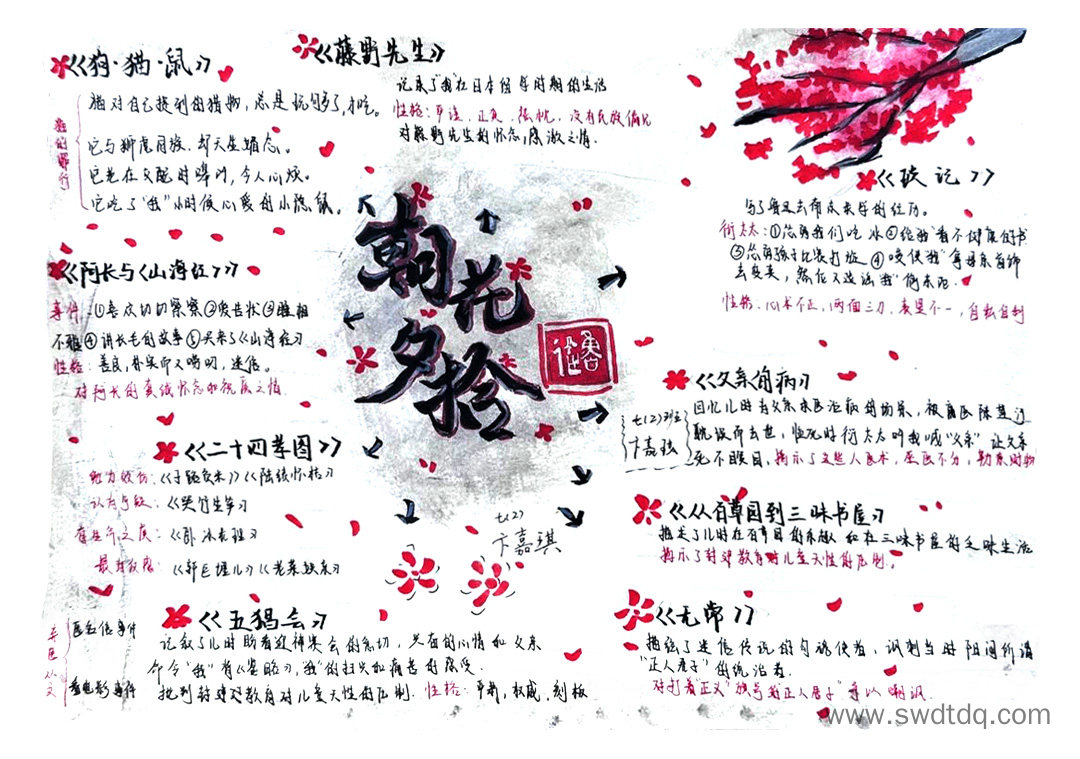 《狗·猫·鼠》
猫对自己捉到的猎物，总是玩够了，才吃。
它与狮虎同族，却天生媚态。
它老在交配时嗥叫，令人心烦。
它吃了“我”小时候心爱的小隐鼠。
《藤野先生》
记录了“我”在日本留学时期的生活
性格：平读、正直、热忱、没有民族偏见
对藤野先生的怀念，感激之情.
《琐记》
①怂恿我们吃冰②给我“看不健康的书
③怂恿孩子比赛打旋④唆使“我”拿母亲首饰
去变卖，然后又造谣“我”偷东西.
性格：心术不正，两面三刀，表里不一，自私自利
《阿长与《山海经》》
事件：①喜欢切切察察②爱告状③睡相
不雅④讲长毛的故事⑤买来了《山海经》
性格：善良，朴实而又迷信.
对阿长的真诚怀念和祝愿之情
朝花
夕拾
《父亲的病》
七(2)班
卞嘉琪
回忆儿时为父亲求医治病的场景，被庸医
耽误而去世，临死时衍太太叫我喊“父亲”让父亲
死不瞑目，揭示了这些人巫医不分，勒索财物
《二十四孝图》
勉力效仿：《子路负米》《陆绩怀桔》
《哭竹生笋》
有生命之虞：《卧冰求鲤》
最为反感：《郭巨埋儿》《老莱娱亲》
《从百草园到三味书屋》
描述了儿时在百草园的乐趣和在三味书屋的乏味生活
揭示了封建教育对儿童天性的压制.
七(2)
卞嘉琪
《五猖会》
记叙了儿时盼着迎神赛会的急切，兴奋的心情和父亲
命令“我”背《鉴略》，“我”的扫兴和痛苦的感受.
批判封建对教育对儿童天性的压制. 性格：严肃，权威，刻板
弃医从文
匿名信事件
看电影事件
《无常》
描绘了迷信传说的勾魂使者，讽刺当时阳间所谓
“正人君子”的统治者.
对打着“正义”旗号“正人君子”予以嘲讽.
www.swdtdq.com